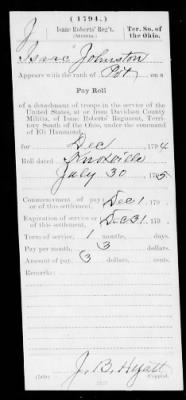 (1794.)
J Isaac Roberts' Reg't. Ter. So. of
(Militia.) the Ohio.
Isaac Johnston
Appears with the rank of Pvt on a
Pay Roll
of a detachment of troops in the service of the
United States, at or from Davidson County
Militia, of Isaac Roberts' Regiment, Terri-
tory South of the Ohio, under the command
of Eli Hammond,
for Dec 1794
Roll dated Knoxville
July 30 1795
Commencement of pay
or of this settlement, Dec 1, 179
Expiration of service
or of this settlement, Dec 31, 179
Term of service, 1 months, days.
Pay per month, 3 dollars,
Amount of pay, 3 dollars, cents.
Remarks:
J. B. Hyatt
Copyist.